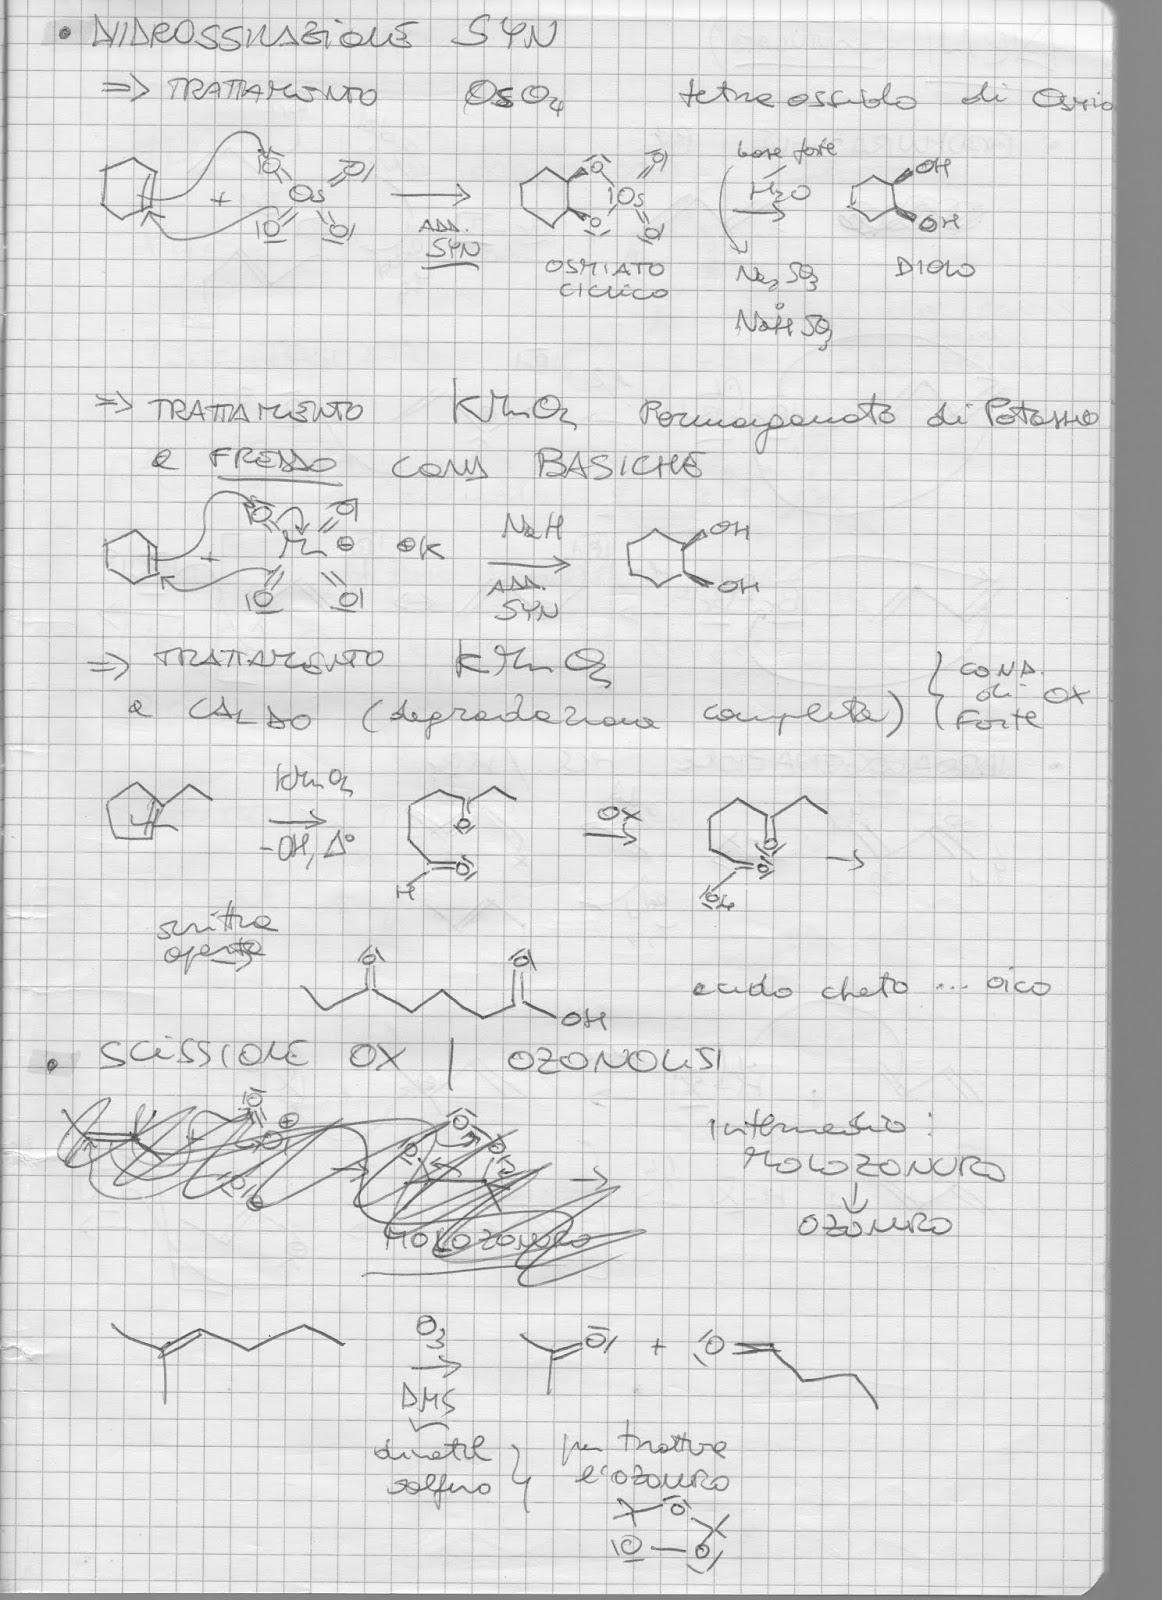 • DIIDROSSILAZIONE SYN
=> TRATTAMENTO OsO4 tetraossido di Osmio
base forte
+ Os ADD. SYN H2O OH OH
OSMIATO CICLICO Na2SO3 o NaHSO3 DIOLO
=> TRATTAMENTO KMnO4 Permanganato di Potassio
a FREDDO COND BASICHE
+ Mn ⊖ ⊕K NaH ADD. SYN OH OH
=> TRATTAMENTO KMnO4
a CALDO (degradazione completa) { COND. di OX Forte
KMnO4 -OH, Δ° O H O OX O O OH
scrittura aperta O O OH acido cheto ... oico
• SCISSIONE OX | OZONOLISI
Intermedio: MOLOZONURO
MOLOZONURO
OZONURO
O3 DMS O + O
dimetil solfuro } per trattare l'OZONURO
O O O